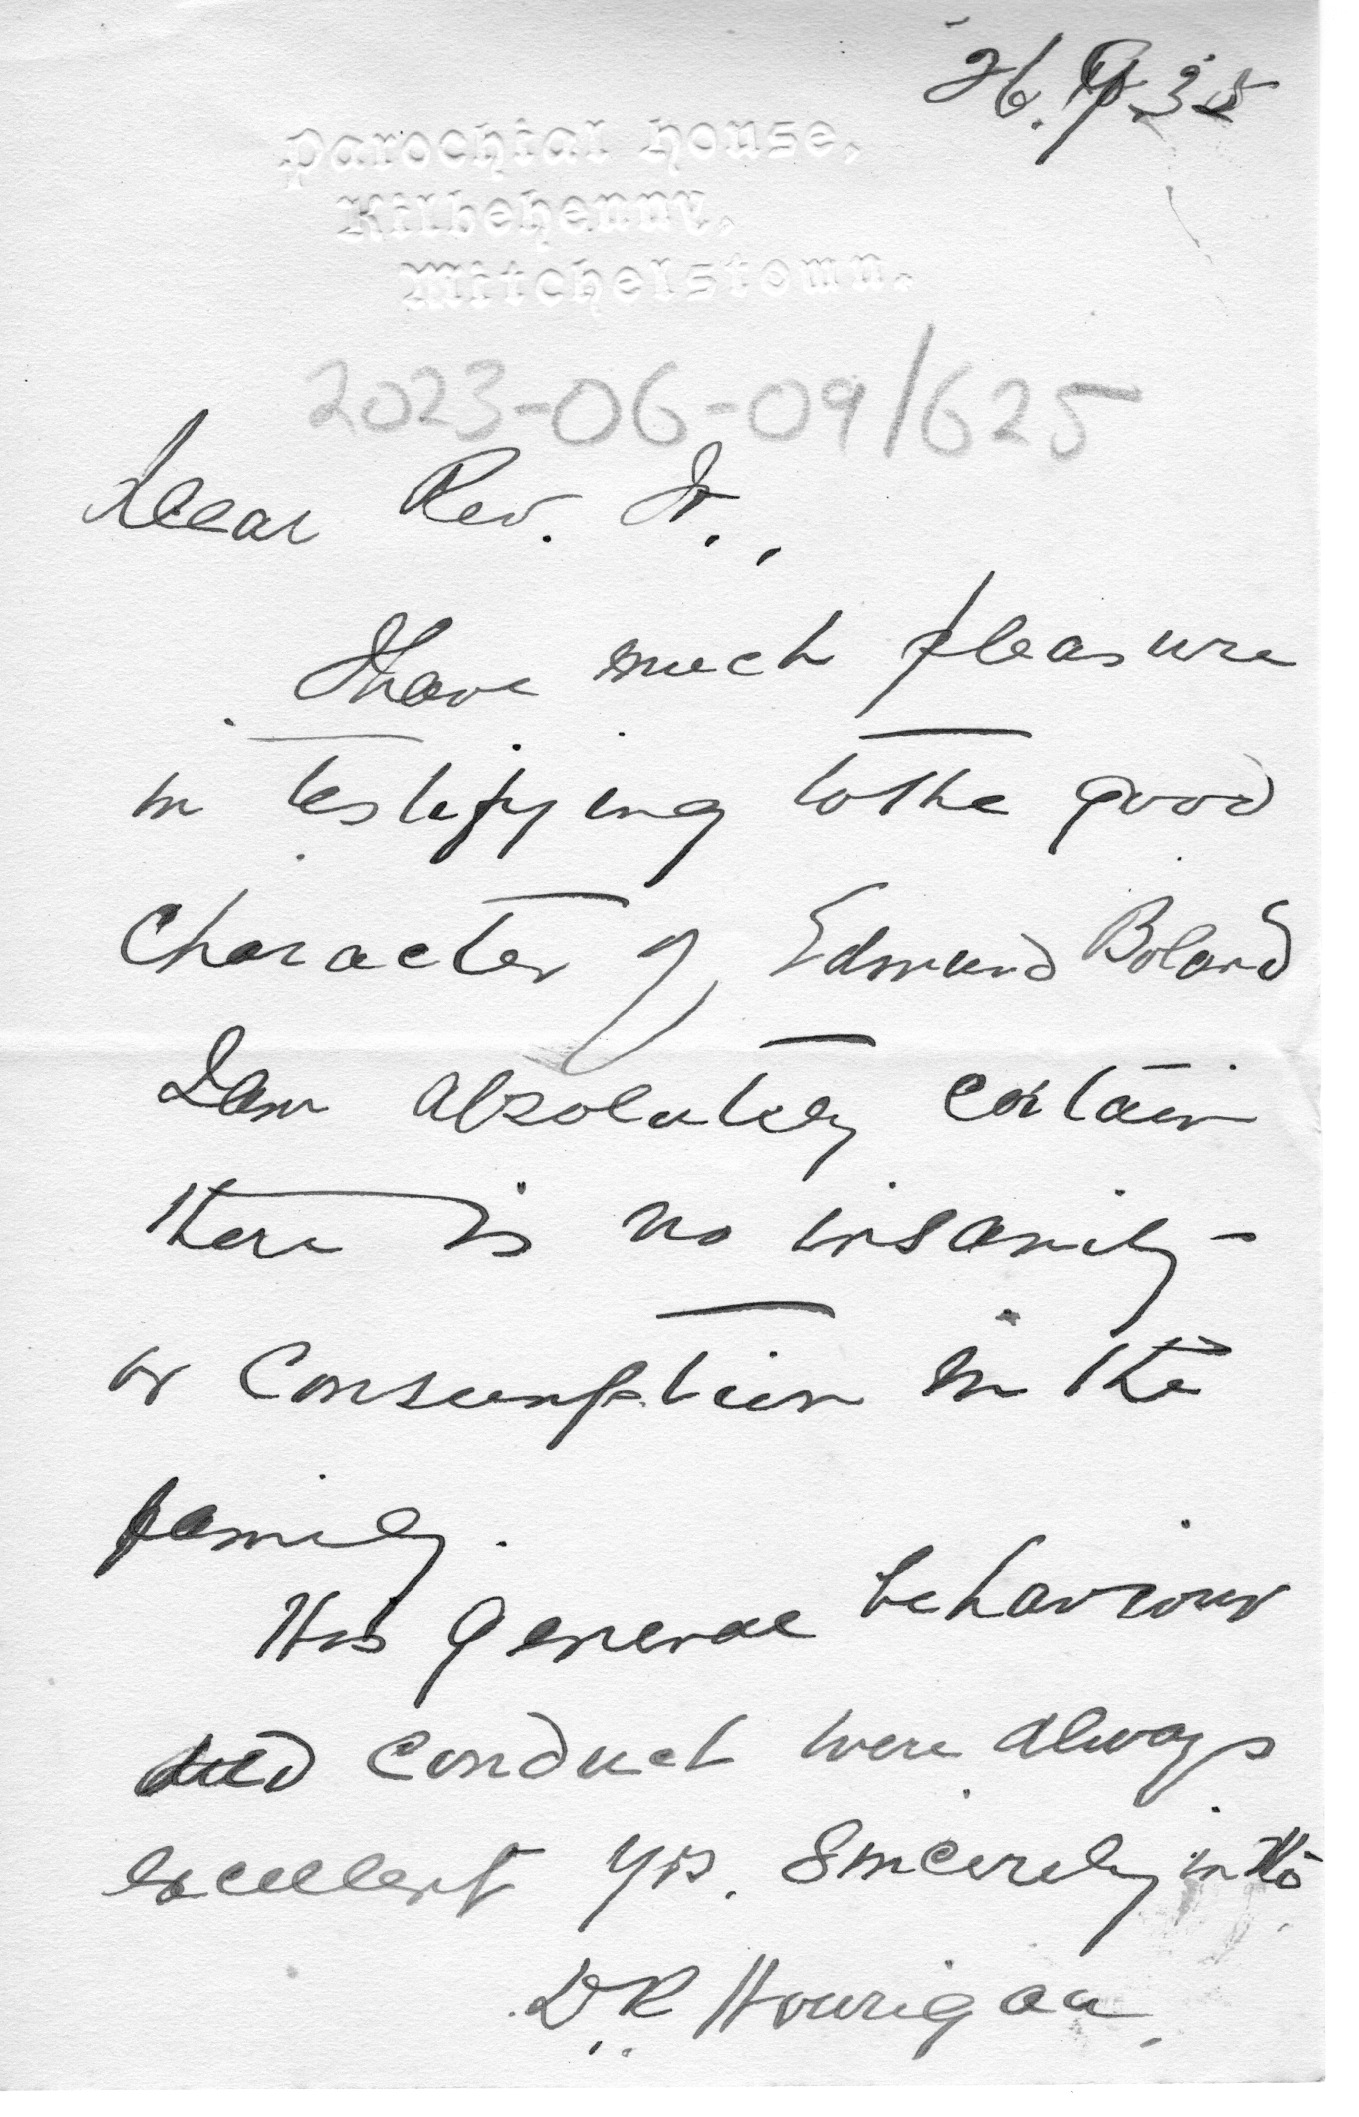 26.9.35
Parochial House,
Kilbehenny,
Mitchelstown.
2023-06-09/625
Dear Rev. Fr.,
I have much pleasure
in testifying to the good
character of Edmund Boland
I am absolutely certain
there is no insanity -
or consumption in the
family.
His general behaviour
and conduct were always
excellent Yrs. Sincerely in
D.R. Hourigan